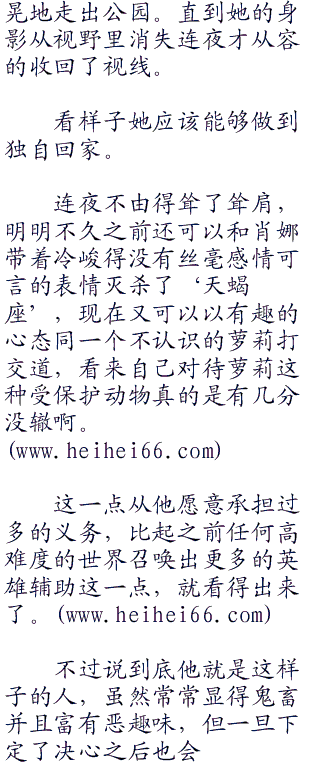 晃地走出公园。直到她的身
影从视野里消失连夜才从容
的收回了视线。
看样子她应该能够做到
独自回家。
连夜不由得耸了耸肩，
明明不久之前还可以和肖娜
带着冷峻得没有丝毫感情可
言的表情灭杀了‘天蝎
座’，现在又可以以有趣的
心态同一个不认识的萝莉打
交道，看来自己对待萝莉这
种受保护动物真的是有几分
没辙啊。
(www.heihei66.com)
这一点从他愿意承担过
多的义务，比起之前任何高
难度的世界召唤出更多的英
雄辅助这一点，就看得出来
了。(www.heihei66.com)
不过说到底他就是这样
子的人，虽然常常显得鬼畜
并且富有恶趣味，但一旦下
定了决心之后也会